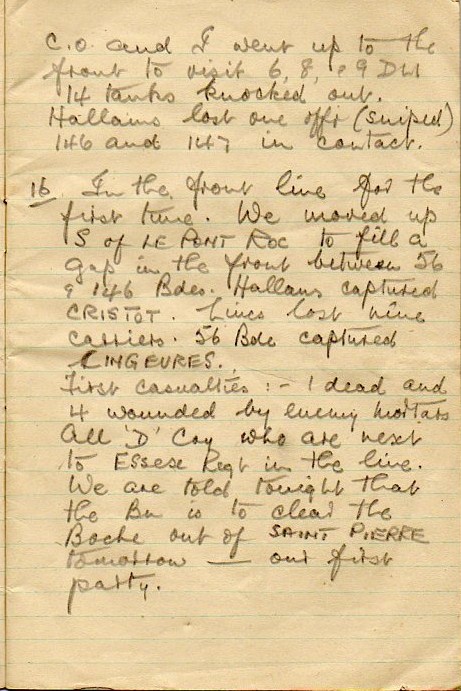 C.O. and I went up to the
front to visit 6, 8, & 9 DLI
14 tanks knocked out.
Hallams lost one offr (sniped)
146 and 147 in contact.
16 In the front line for the
first time. We moved up
S of LE PONT ROC to fill a
gap in the front between 56
& 146 Bdes. Hallams captured
CRISTOT. Lincs lost nine
carriers. 56 Bde captured
LINGEVRES.
First casualties :- 1 dead and
4 wounded by enemy mortars
All 'D' Coy who are next
to Essex Regt in the line.
We are told tonight that
the Bn is to clear the
Boche out of SAINT PIERRE
tomorrow — our first
party.